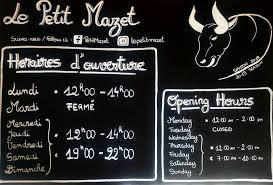 Le Petit Mazet
Suivez-nous / Follow us :
PetitMazet
lepetitmazet
Horaires d'ouverture
Lundi • 12H00 - 14H00
Mardi FERMÉ
Mercredi
Jeudi • 12H00 - 14H00
Vendredi
Samedi • 19H00 - 22H00
Dimanche
Opening Hours
Monday • 12:00 am - 2:00 pm
Tuesday CLOSED
Wednesday
Thursday • 12:00 am - 2:00 pm
Friday
Saturday
Sunday